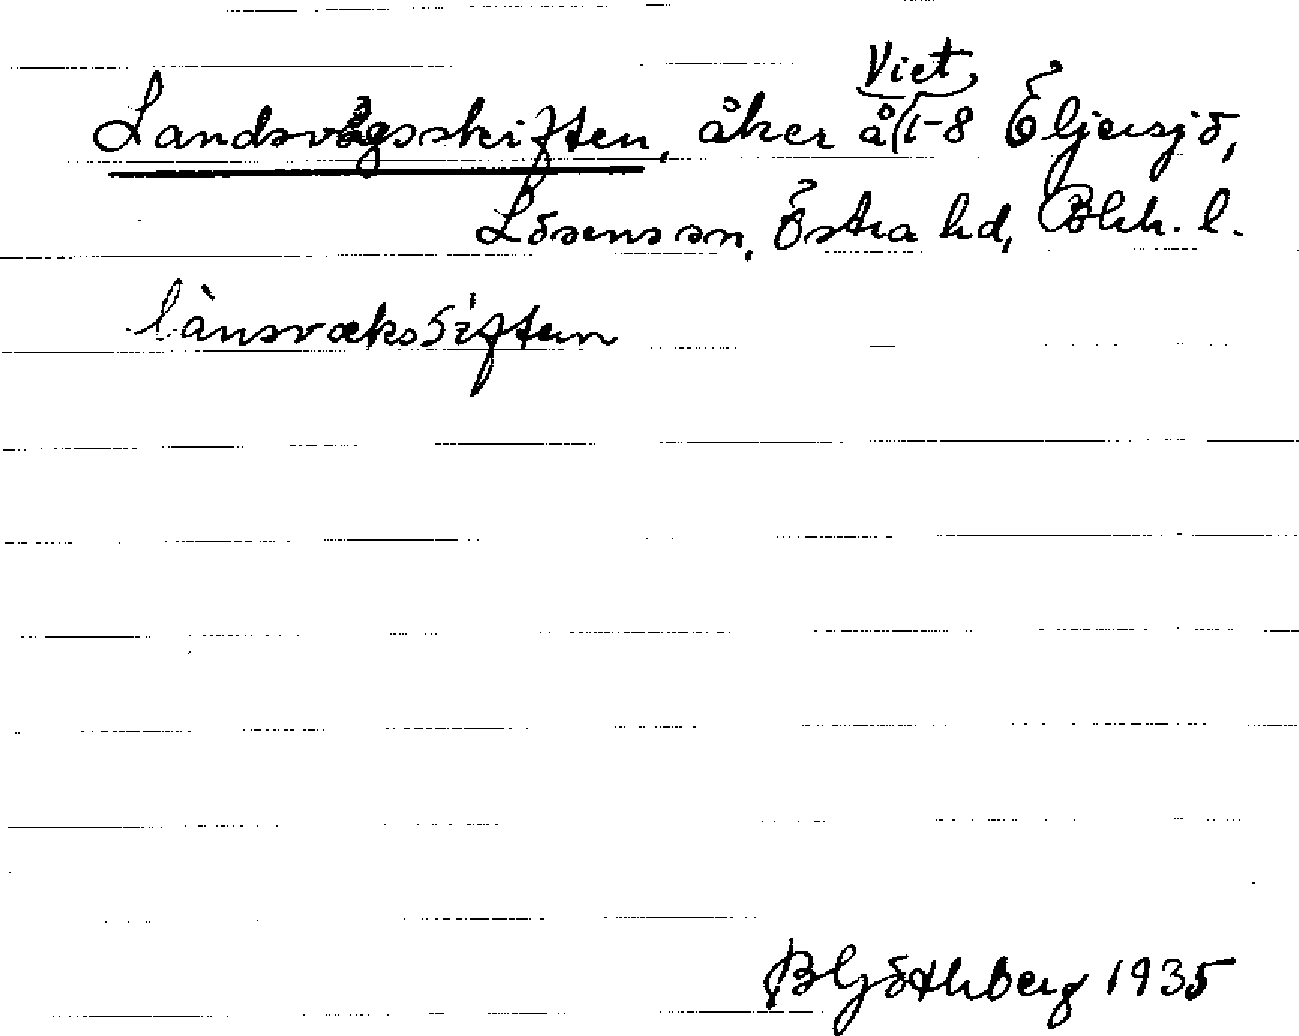 Viet
Landsvägsskiften, åker å 1-8 Öljersjö,
Lösens sn, Östra hd, Blek. l.
lànsvæksSiften
B Göthberg 1935